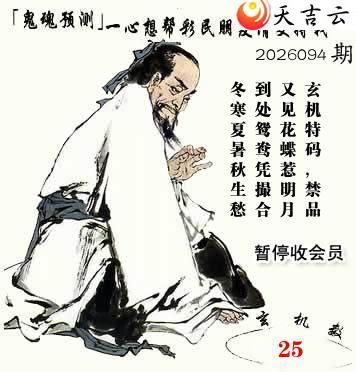 天吉云
「鬼魂预测」一心想帮彩民朋
2026094 期
玄机特码，禁品
又见花蝶惹明月
到处鸳鸯凭撮合
冬寒夏暑秋生愁
暂停收会员
玄机数
25